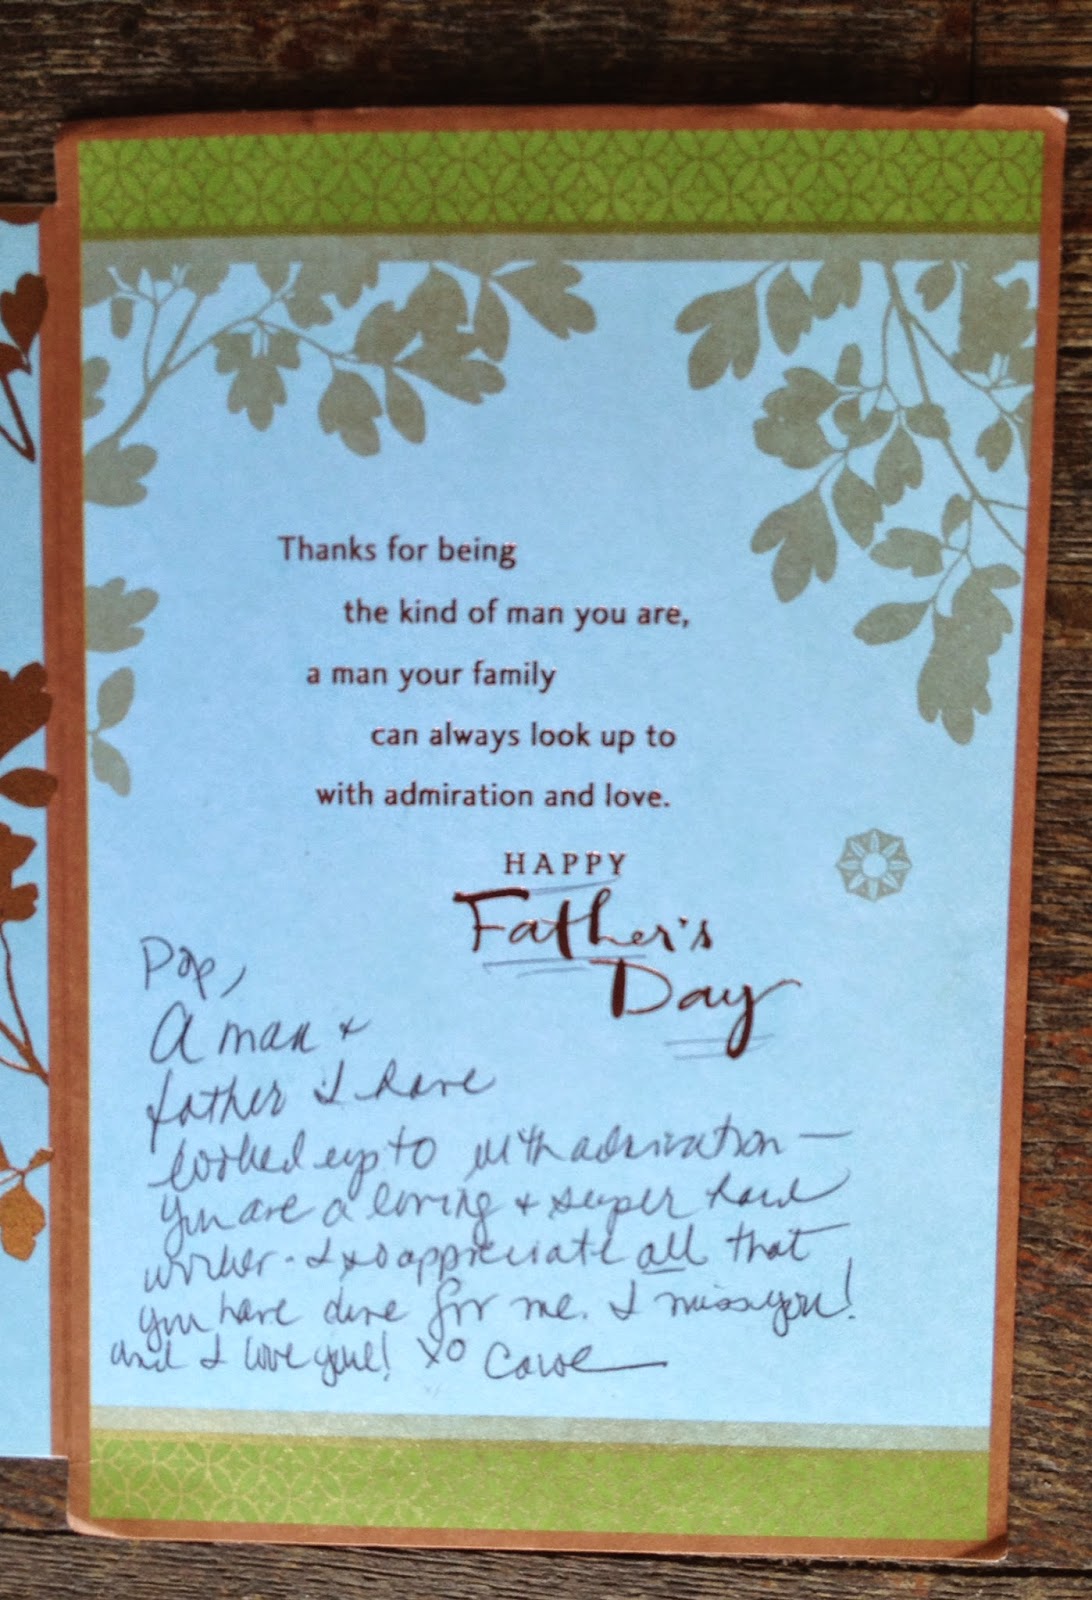 Thanks for being
the kind of man you are,
a man your family
can always look up to
with admiration and love.
HAPPY
Father's
Day
Pop,
A man +
father I have
looked up to with admiration —
You are a loving + super hard
worker - I so appreciate all that
you have done for me. I miss you!
and I love you! xo